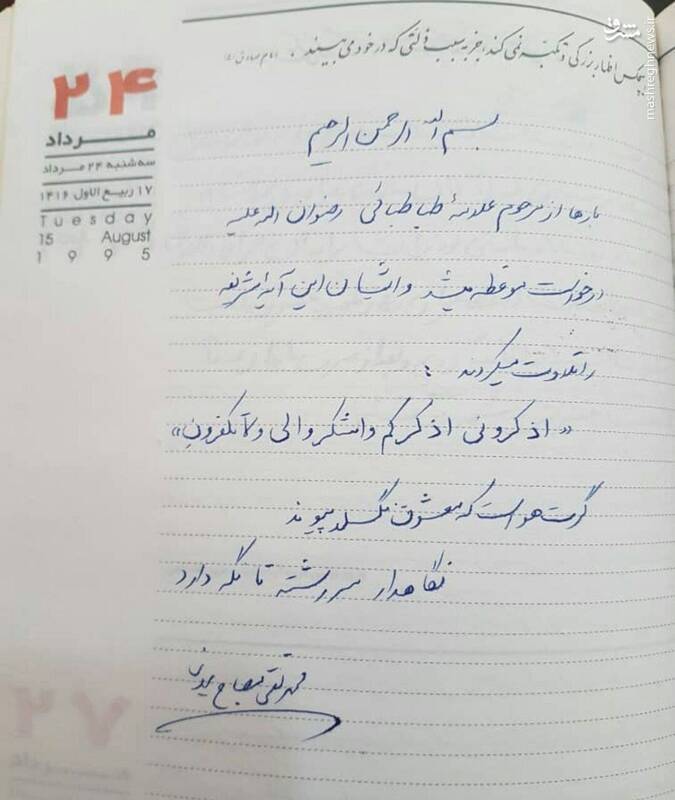 مشرق
mashreghnews.ir
کس اظهار بزرگی و تکبر نمی کند، جز به سبب ذلتی که در خود می بیند. امام صادق (ع)
۲۴
مرداد
سه شنبه ۲۴ مرداد
۱۷ ربیع الاول ۱۴۱۶
Tuesday
15 August
1995
بسم الله الرحمن الرحیم
بارها از مرحوم علامهٔ طباطبائی رضوان الله علیه
درخواست موعظه میشد و ایشان این آیهٔ شریفه
را تلاوت میکردند :
«اذکرونی اذکرکم واشکروا لی ولا تکفرون»
گرت هواست که معشوق نگسلد پیوند
نگاهدار سر رشته تا نگه دارد
محمد تقی مصباح یزدی
۲۷